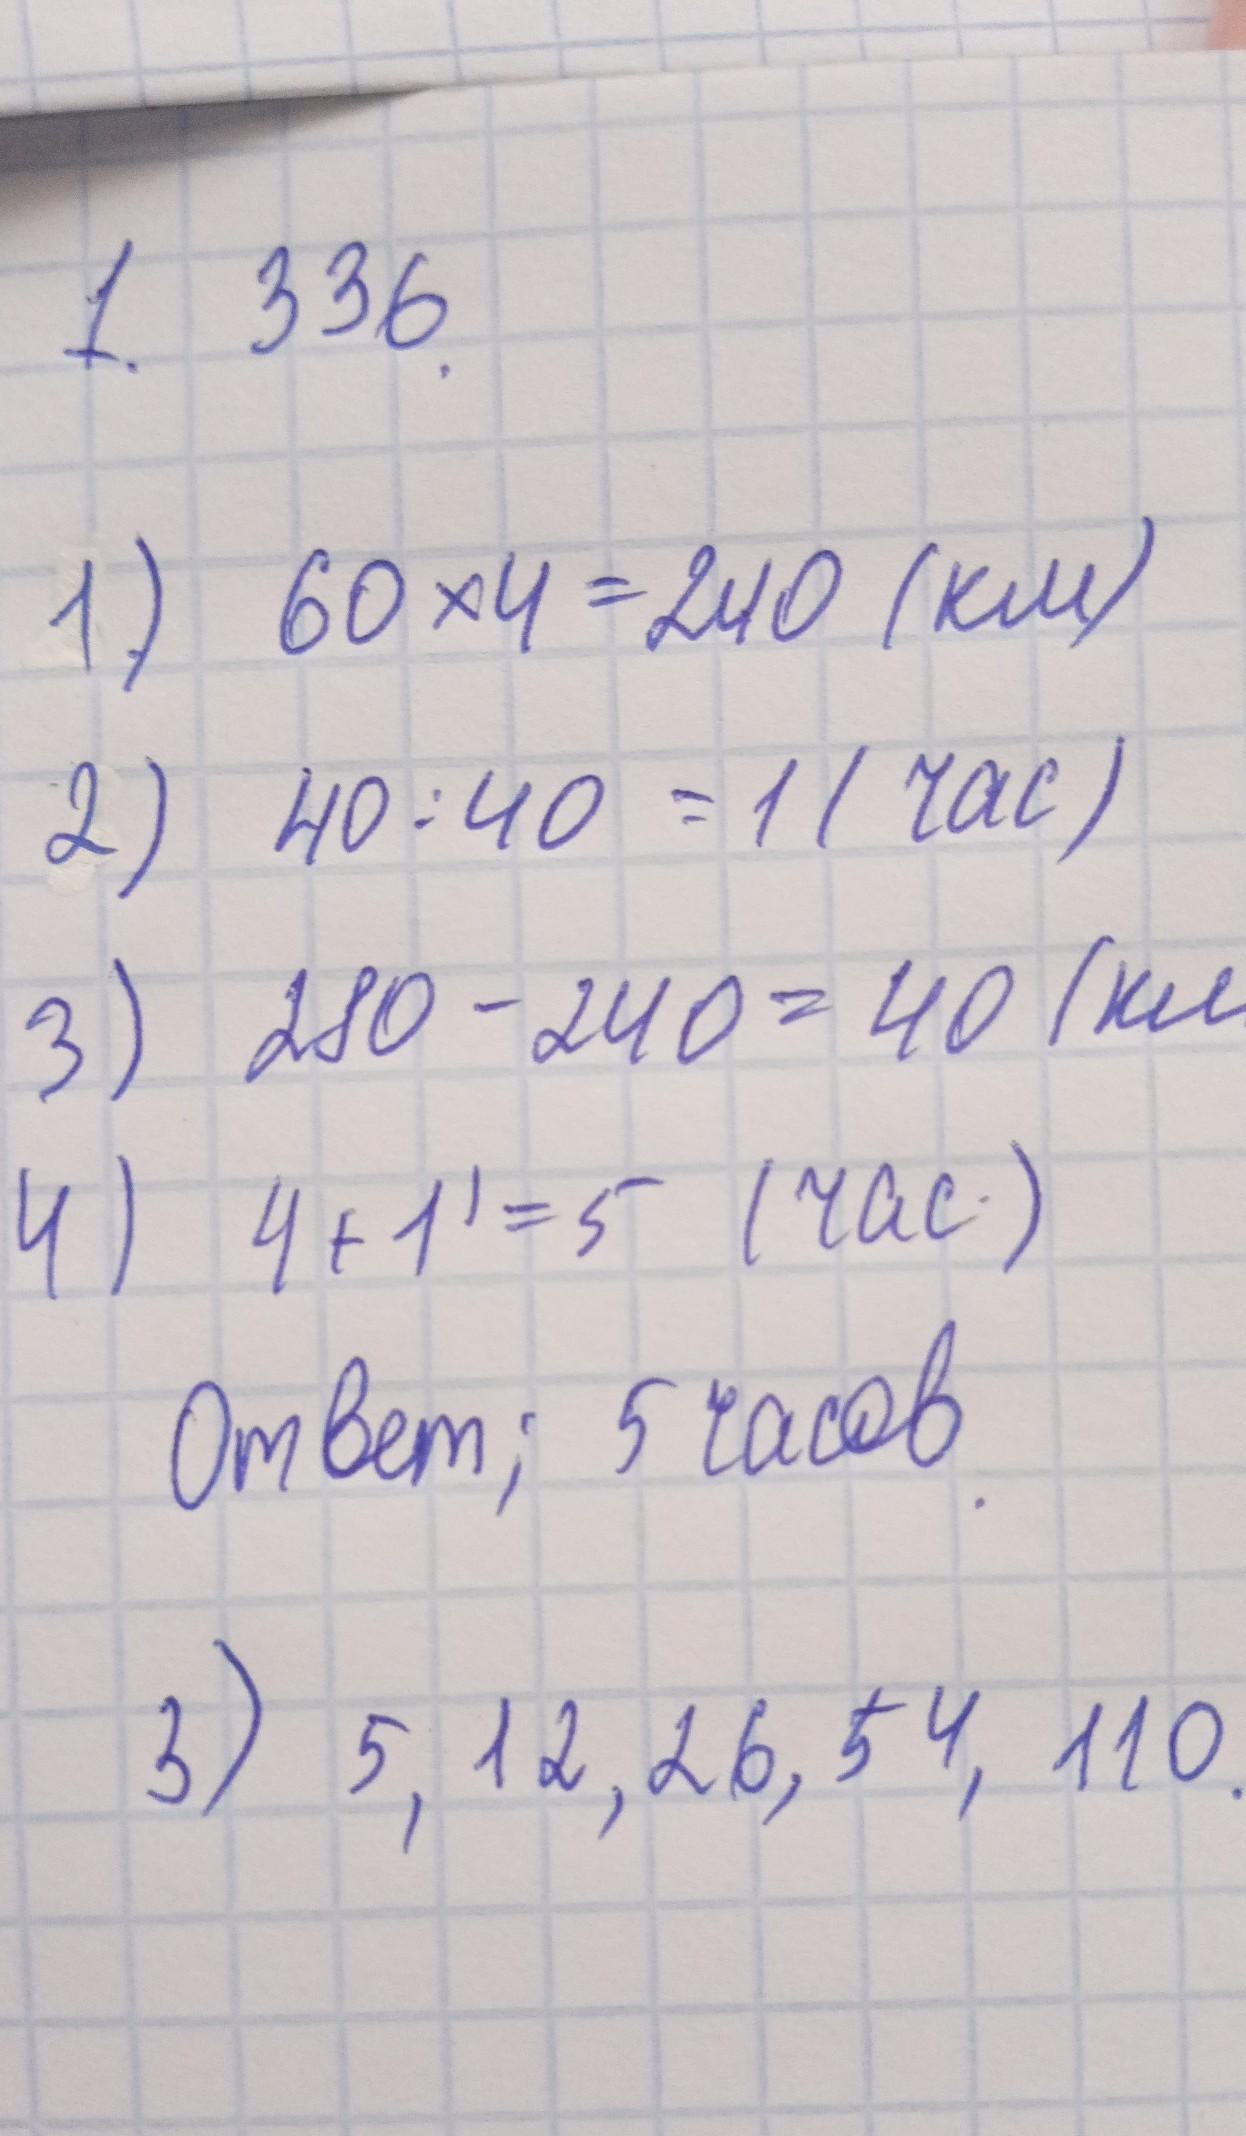 1. 336.
1) 60×4=240 (км)
2) 40:40 = 1 (час)
3) 280-240= 40 (км
4) 4+1=5 (час.)
Ответ; 5 часов.
3) 5, 12, 26, 54, 110.